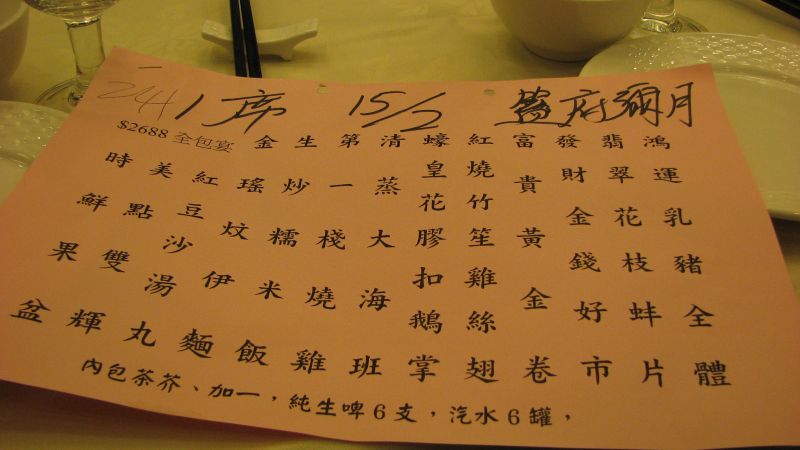 1席 15/2 府彌月
$2688 全包宴
鴻運乳豬全體
翡翠花枝蚌片
發財金錢好市
富貴黃金卷
紅燒竹笙雞絲翅
蠔皇花膠扣鵝掌
清蒸大海班
第一棧燒雞
生炒糯米飯
金瑤炆伊麵
紅豆沙湯丸
美點雙輝
時鮮果盆
內包茶芥、加一，純生啤6支，汽水6罐，